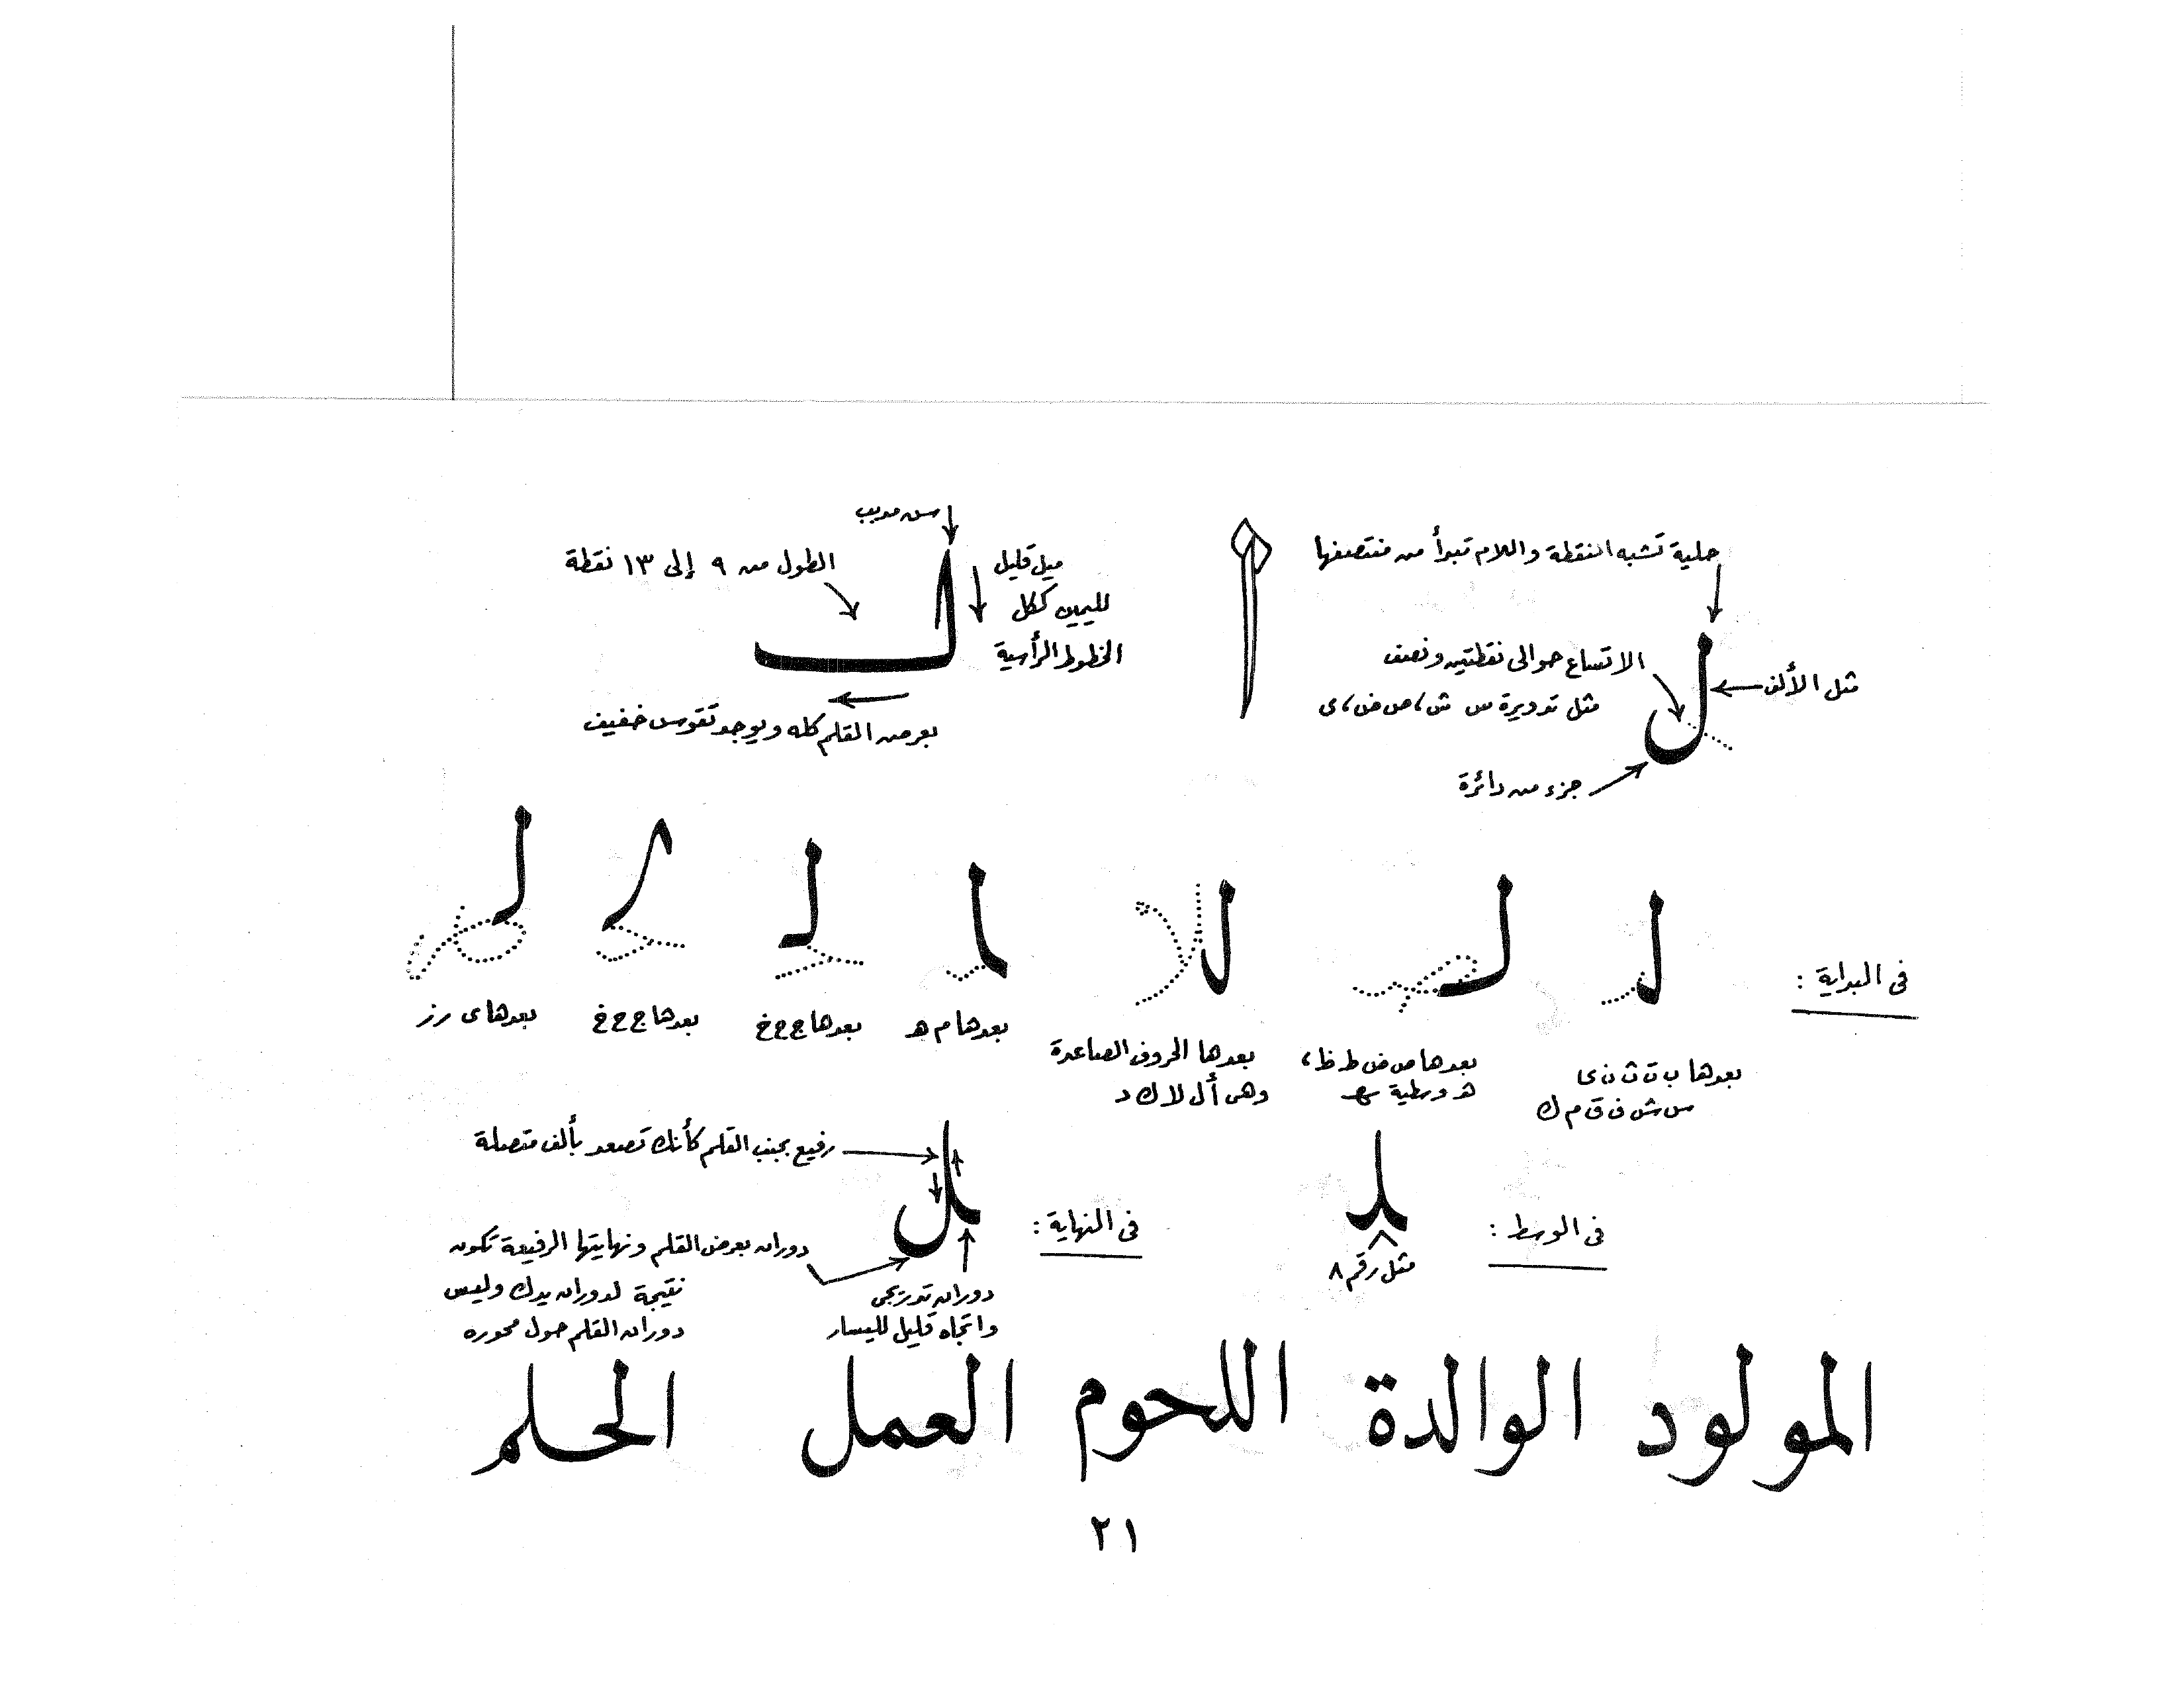 حلية تشبه النقطة واللام تبدأ من منتصفها
مثل الألف
الاتساع حوالى نقطتين ونصف
مثل تدويرة س ش ، ص ض ، ى
جزء من دائرة
سن مدبب
ميل قليل
لليمين ككل
الخطوط الرأسية
الطول من ٩ إلى ١٣ نقطة
بعرض القلم كله ويوجد تقوس خفيف
فى البداية :
بعدها ب ت ث ن ى
س ش ف ق م ك
بعدها ص ض ط ظ ،
هـ وسطية
بعدها الحروف الصاعدة
وهى أ ل لا ك د
بعدها م هـ
بعدها ج ح خ
بعدها ج ح خ
بعدها ى ر ز
فى الوسط :
مثل رقم ٨
فى النهاية :
رفيع بجنب القلم كأنك تصعد بألف متصلة
دوران بعرض القلم ونهايتها الرفيعة تكون
نتيجة لدوران يدك وليس
دوران القلم حول محوره
دوران تدريجى
واتجاه قليل لليسار
المولود الوالدة اللحوم العمل الحلم
٢١